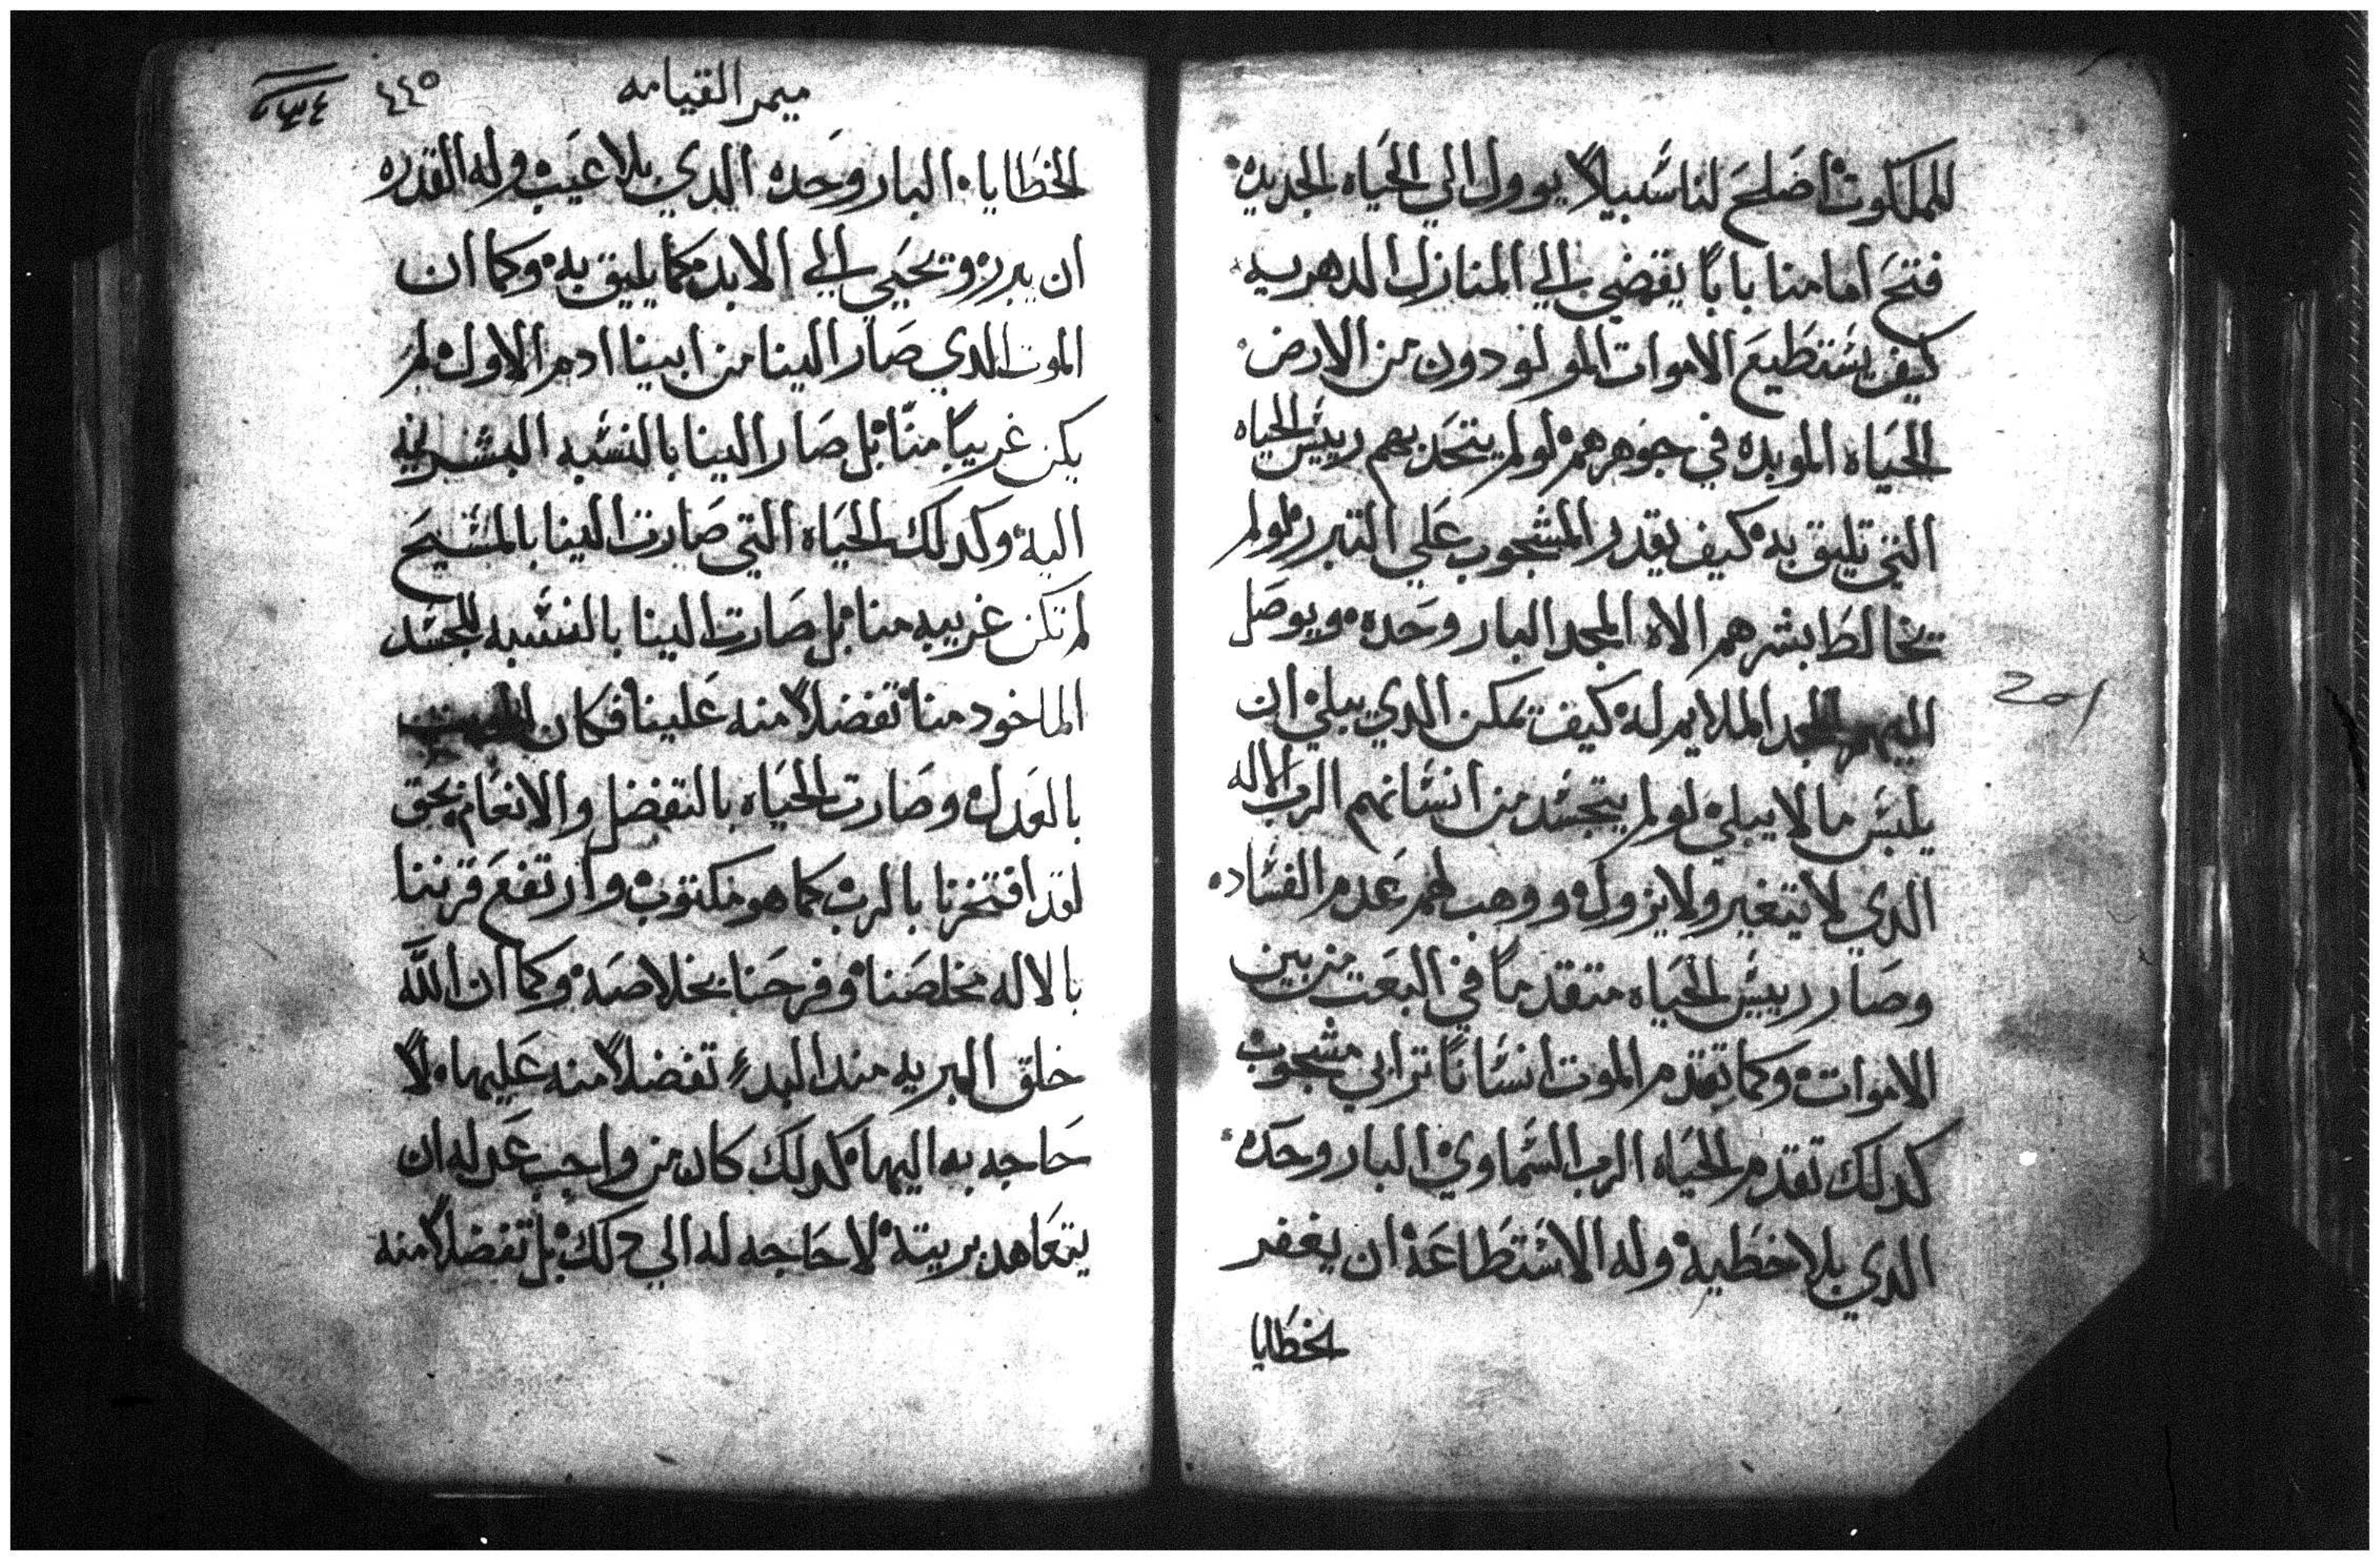 للملكوت اصلح لنا سبيلاً يوول الي الحياه الجديده
فتح امامنا باباً يفضي الي المنازل الدهريه
كيف يستطيع الاموات المولودون من الارض
الحياه الموبده في جوهرهم لو لم يتحد بهم رييس الحياه
التي تليق به كيف يقدر المشجوب علي التبرر لو لم
تخالط بشرهم الاه المجد البار وحده ويوصل
اليهم المجد الملايم له كيف تمكن الدي يبلي ان
يلبس ما لا يبلي لو لم يتجسد من انسانهم الرب الاله
الدي لا يتغير ولا يزول ووهب لهم عدم الفساد
وصار رييس الحياه متقدماً في البعت من بين
الاموات وكما تقدم الموت انساناً ترابي مشجوب
كدلك تقدم الحياه الرب السماوي البار وحده
الدي بلا خطيه وله الاستطاعه ان يغفر
الخطايا
201
ميمر القيامه
٤٤٥
الخطايا البار وحده الدي بلا عيب وله القدره
ان يبرر ويحيي الي الابد كما يليق به وكما ان
الموت الدي صار الينا من ابينا ادم الاول لم
يكن غريباً منا بل صار الينا بالنسبه البشريه
اليه وكدلك الحياه التي صارت الينا بالمسيح
لم تكن غريبه منا بل صارت الينا بالنسبه للجسد
الماخود منا تفضلاً منه علينا فكان
بالعدل وصارت الحياه بالتفضل والانعام بحق
لقد افتخرنا بالرب كما هو مكتوب وارتفع قرننا
بالاله مخلصنا وفرحنا بخلاصه وكما ان الله
خلق البريه مند البدء تفضلاً منه عليها لا
حاجه به اليها كدلك كان من واجب عدله ان
يتعاهد بريته لا حاجه له الي دلك بل تفضلاً منه